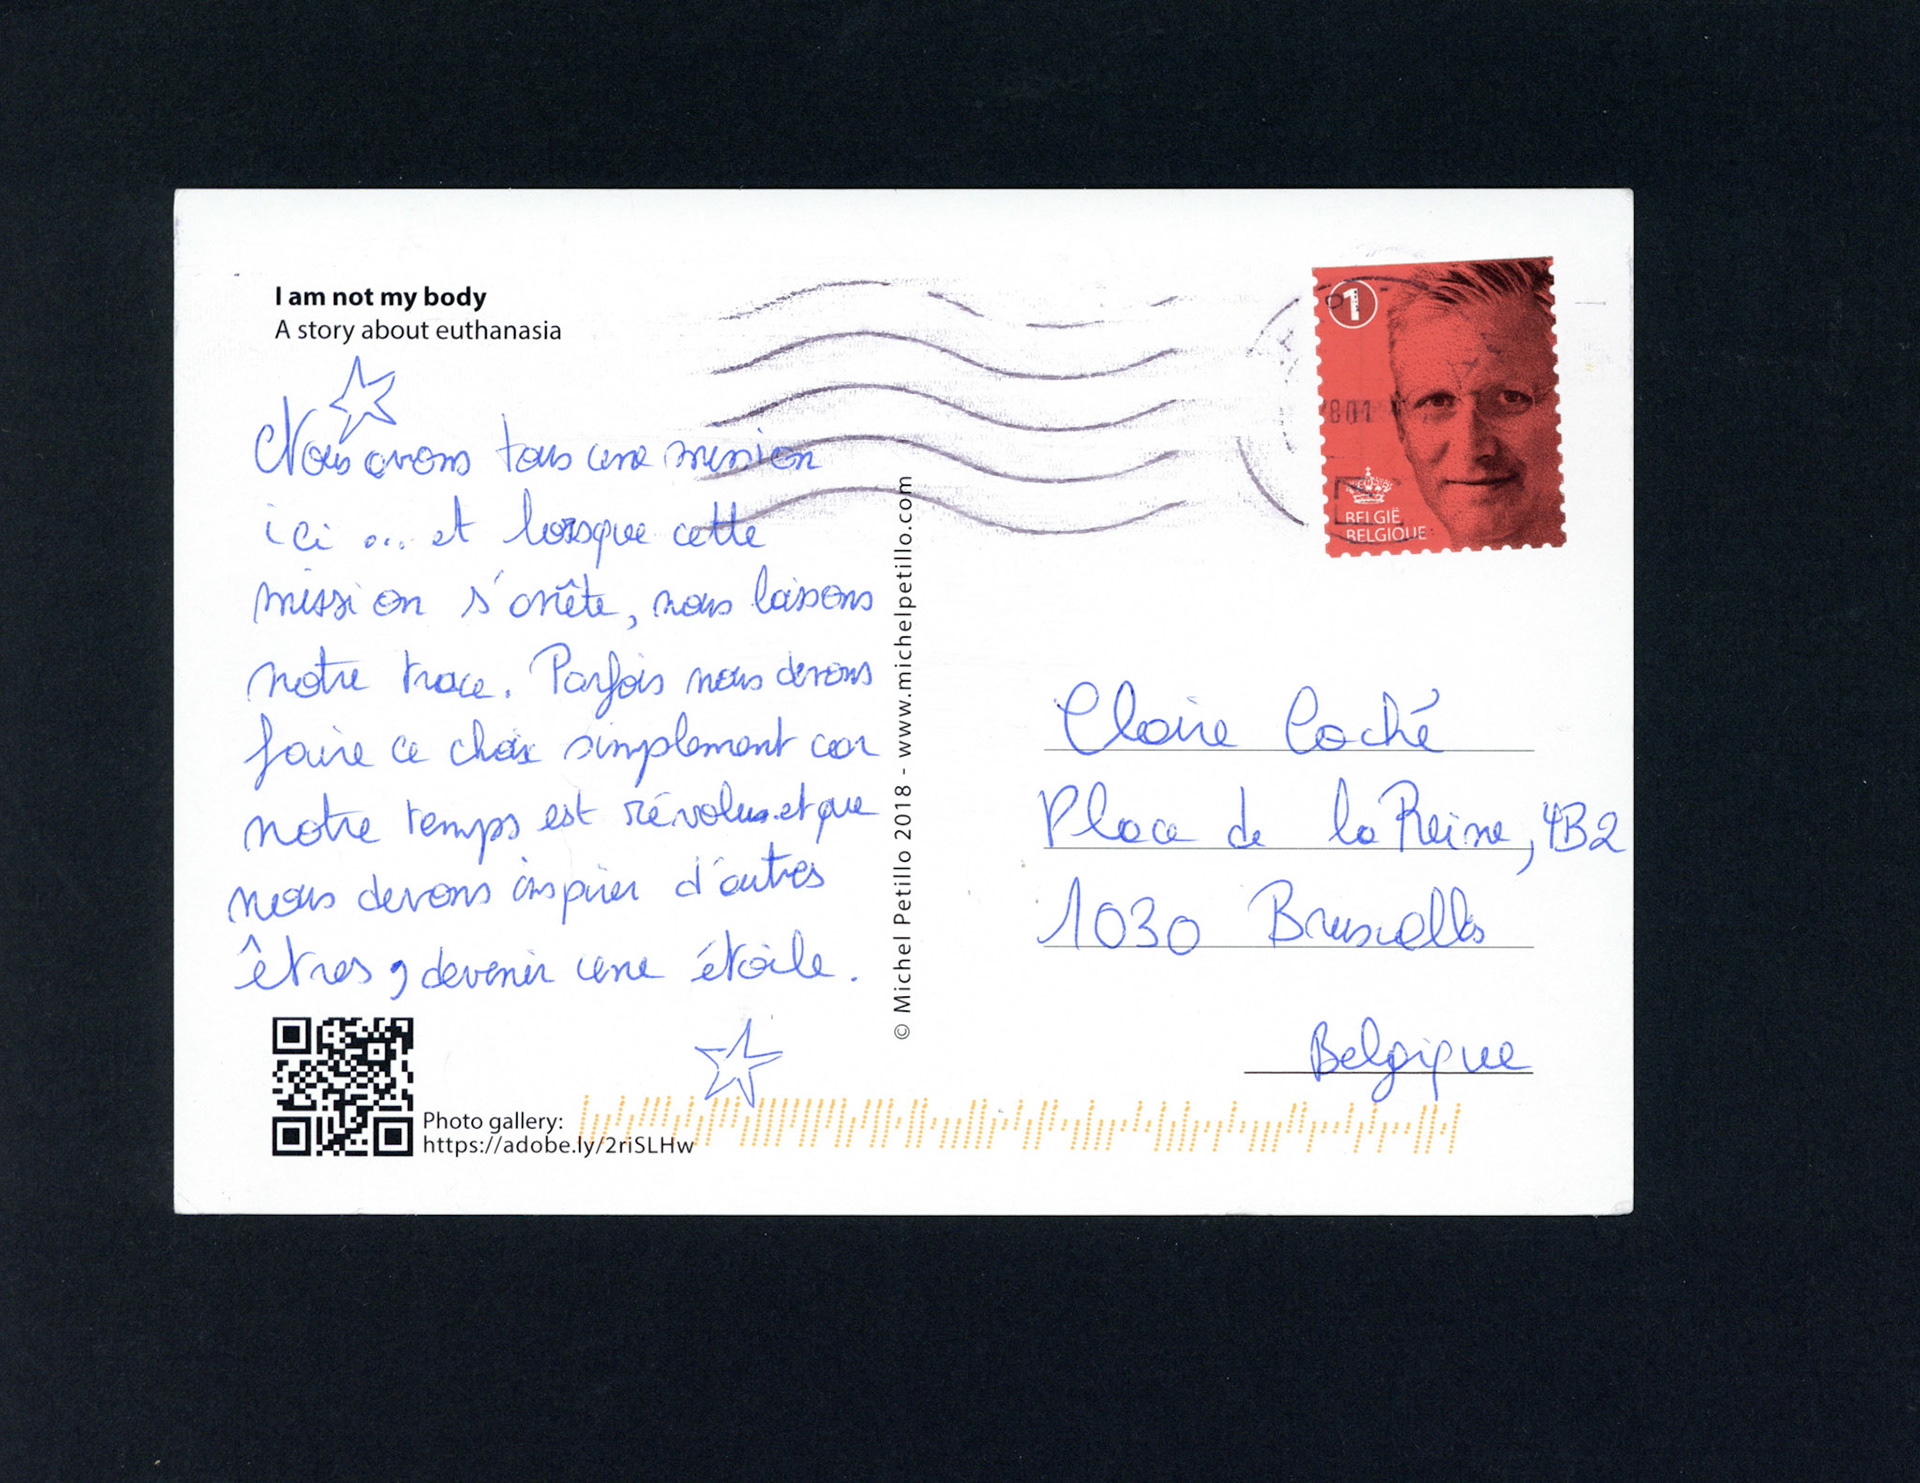 I am not my body
A story about euthanasia
Nous avons tous une mission
ici ... et lorsque cette
mission s'arrête, nous laissons
notre trace. Parfois nous devons
faire ce choix simplement car
notre temps est révolu et que
nous devons inspirer d'autres
êtres, devenir une étoile.
Photo gallery:
https://adobe.ly/2riSLHw
© Michel Petillo 2018 - www.michelpetillo.com
1
801
BELGIË
BELGIQUE
Claire Coché
Place de la Reine, 4B2
1030 Bruxelles
Belgique